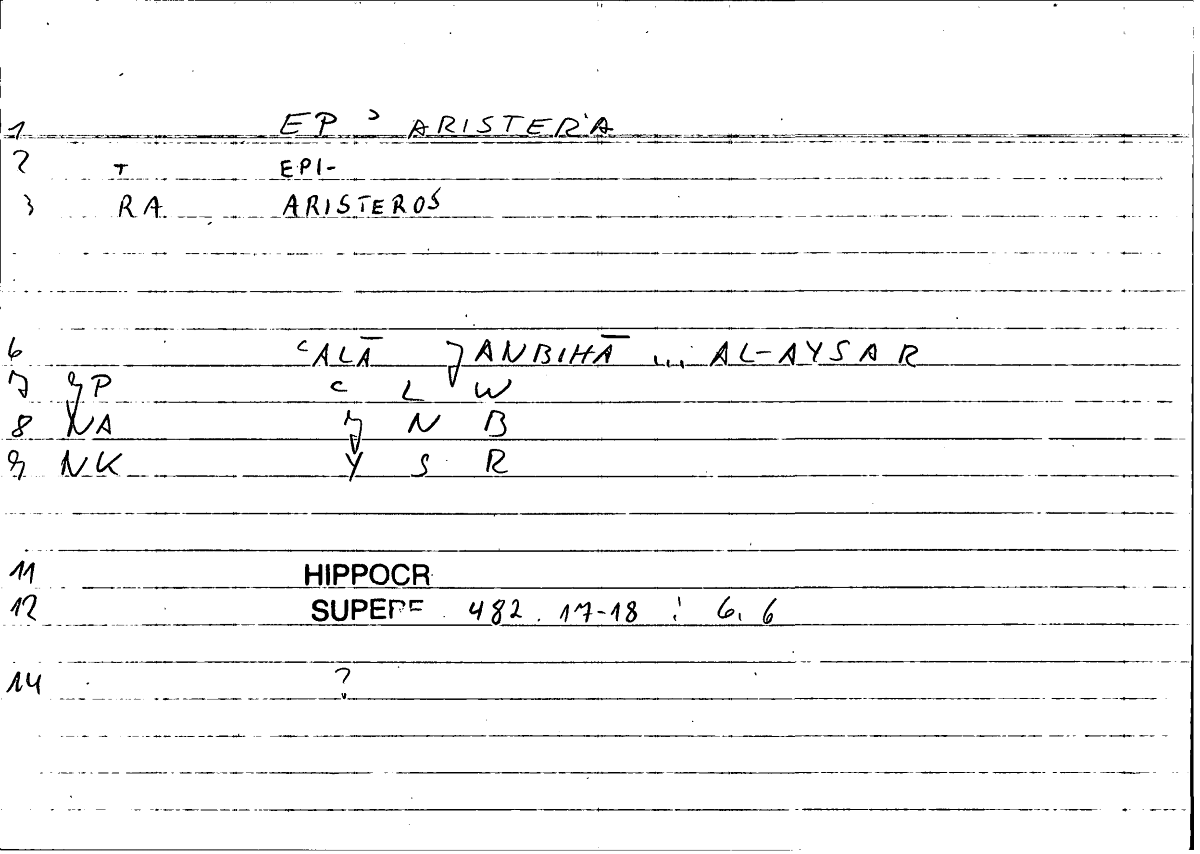 1 EP ʾ ARISTERÀ
2 T EPI-
3 RA ARISTERÓS
6 ʿALĀ ǦANBIHĀ ... AL-AYSAR
7 ʿ L W
8 NA Ǧ N B
9 NK Y S R
11 HIPPOCR
12 SUPERF 482. 17-18 ; 6. 6
14 ?